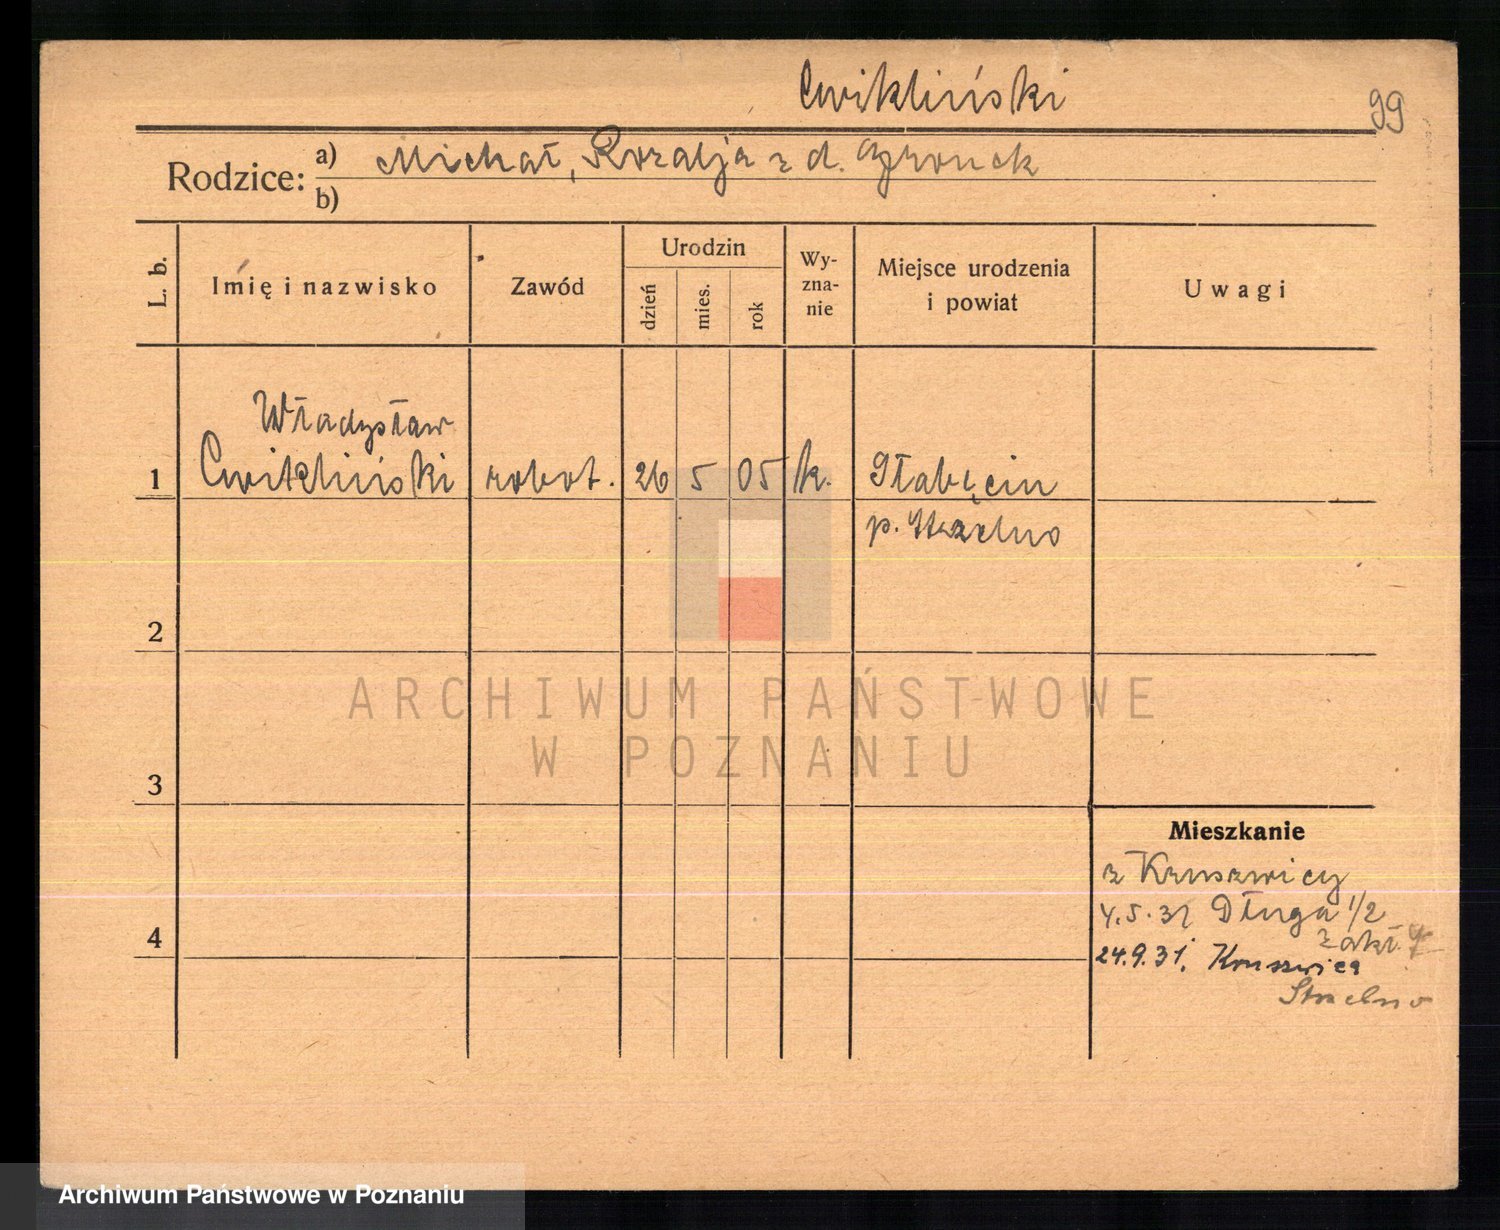 Cwikliński
99
Rodzice: a) Michał, Rozalja z d.
b)
L. b.
Imię i nazwisko
Zawód
Urodzin
dzień
mies.
rok
Wy-
zna-
nie
Miejsce urodzenia
i powiat
Uwagi
Władysław
1 Cwikliński robot. 26 5 05 k. Głębęcin
p. Strzelno
2
ARCHIWUM PAŃSTWOWE
W POZNANIU
3
Mieszkanie
z Kruszwicy
4.5.31 Długa 1/2
4
24.9.31. Kruszwica
Strzelno
Archiwum Państwowe w Poznaniu